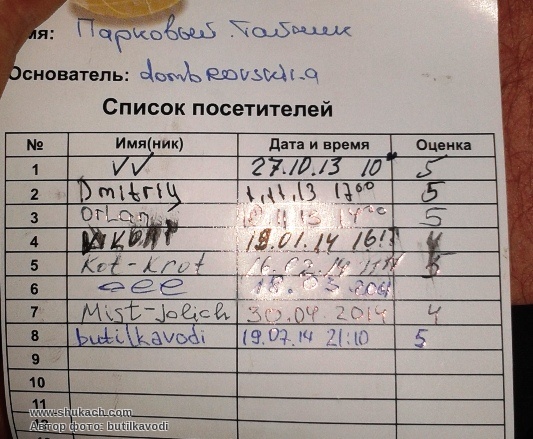 мя: Парковый Тайник
Основатель: dombrovskii.a
Список посетителей
№ Имя(ник) Дата и время Оценка
1 VV 27.10.13 10 5
2 Dmitriy 1700 5
3 Orlan 5
4 19.01.14
5 Kot-Krot
6
7 Mist-jolich 30.04.2014 4
8 butilkavodi 19.07.14 21:10 5
9
10
11
www.shukach.com
Автор фото: butilkavodi